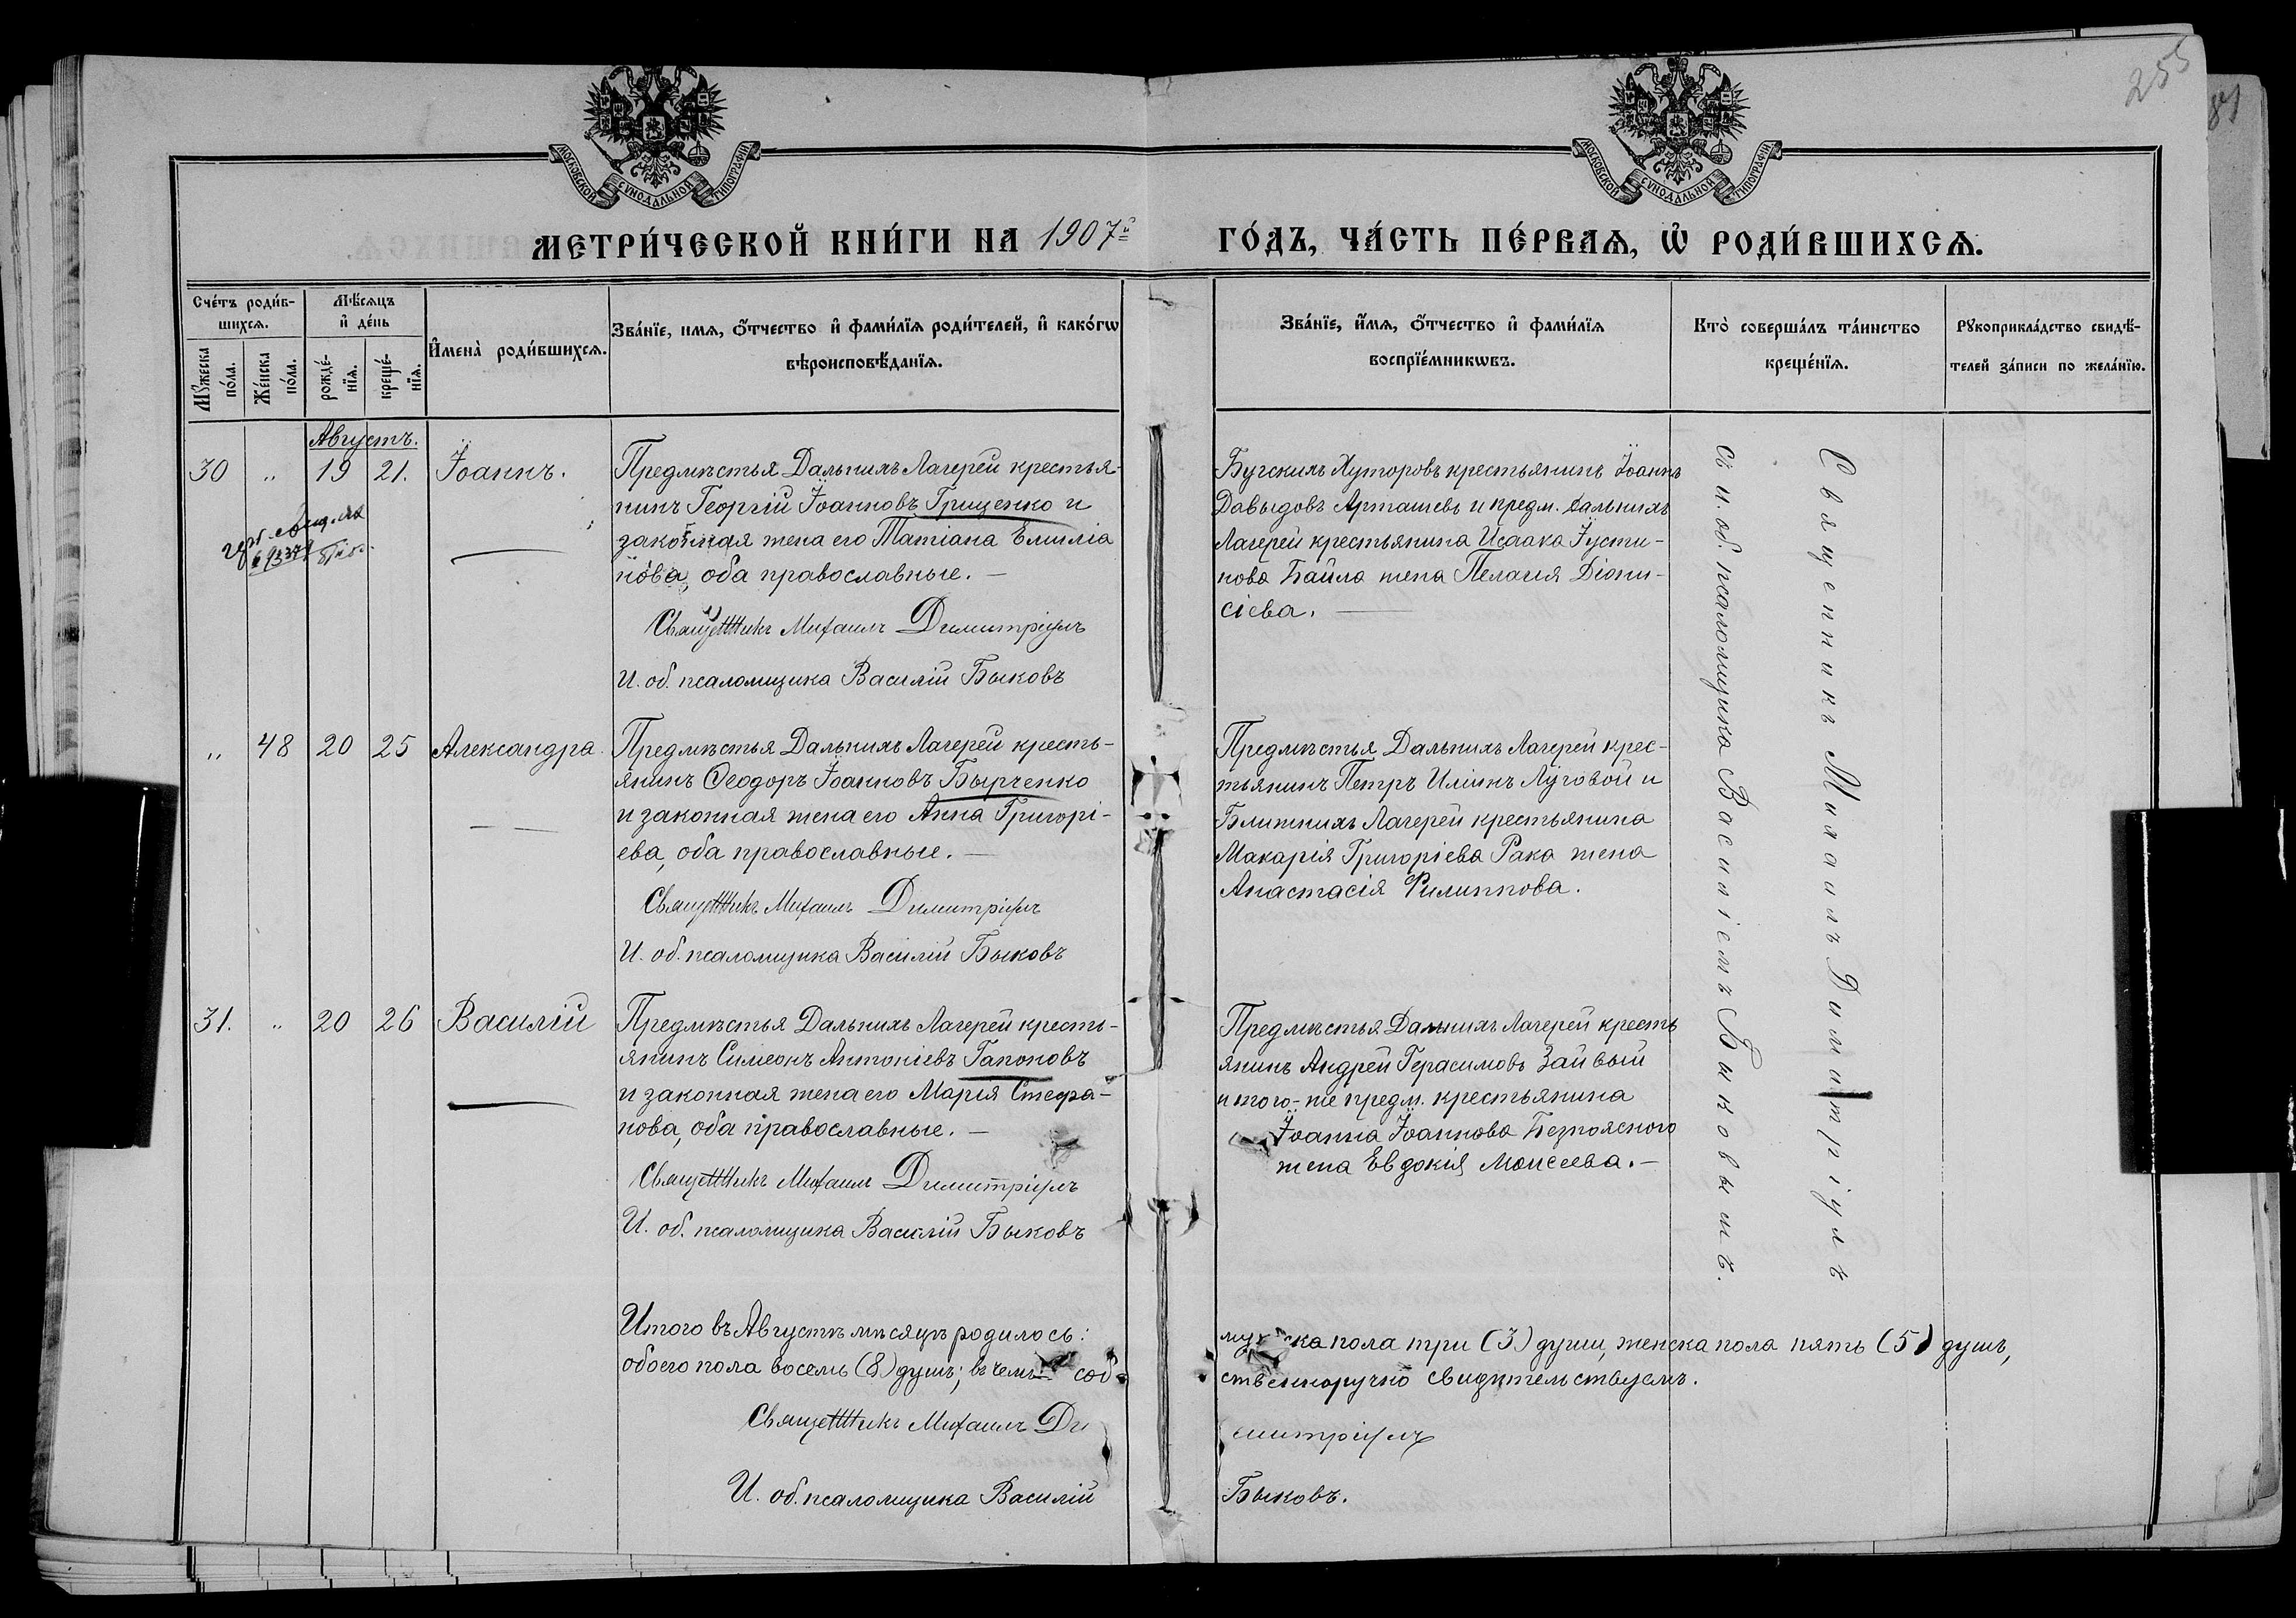 255
МОСКОВСКОЙ СѴНОДАЛЬНОЙ ТИПОГРАФІИ
МОСКОВСКОЙ СѴНОДАЛЬНОЙ ТИПОГРАФІИ
МЕТРИ́ЧЕСКОЙ КНИ́ГИ НА 1907й
ГО́ДЪ, ЧА́СТЬ ПЕ́РВАѦ, Ѽ РОДИ́ВШИХСѦ.
Сче́тъ роди́в-
шихсѧ.
Мѣ́сѧцъ
и҆ де́нь
Мꙋ́жеска
по́ла.
Же́нска
по́ла.
рожде́-
нїѧ.
креще́-
нїѧ.
И҆мена̀ роди́вшихсѧ.
Зва́нїе, имѧ, ѻ҆́тчество и҆ фами́лїѧ роди́телей, и҆ како́гѡ
вѣроисповѣ́данїѧ.
Зва́нїе, и҆́мѧ, ѻ҆́тчество и҆ фами́лїѧ
воспрїе́мникѡвъ.
Кто̀ соверша́лъ та́инство
креще́нїѧ.
Рꙋкоприкла́дство свидѣ́-
телей за́писи по жела́нїю.
Августъ.
30 " 19 21. Іоаннъ.
Предмѣстья Дальнихъ Лагерей крестья-
нинъ Георгій Іоанновъ Грищенко и
законная жена его Татіана Емиліа
нова, оба православные. —
Священникъ Михаилъ Димитріухъ
И. об. псаломщика Василій Быковъ
Бугскихъ Хуторовъ крестьянинъ Іоаннъ
Давыдовъ Арташевъ и предм. Дальнихъ
Лагерей крестьянина Исаака Іусти-
нова Байла жена Пелагея Діони-
сіева. —
" 48 20 25 Александра.
Предмѣстья Дальнихъ Лагерей кресть-
янинъ Ѳеодоръ Іоанновъ Бырченко
и законная жена его Анна Григорі-
ева, оба православные. —
Священникъ Михаилъ Димитріухъ
И. об. псаломщика Василій Быковъ
Предмѣстья Дальнихъ Лагерей крес-
тьянинъ Петръ Иліинъ Луговой и
Ближнихъ Лагерей крестьянина
Макарія Григоріева Рака жена
Анастасія Филиппова.
31. " 20 26 Василій
Предмѣстья Дальнихъ Лагерей кресть-
янинъ Симеонъ Антоніевъ Гапоновъ
и законная жена его Марія Стефа-
нова, оба православные. —
Священникъ Михаилъ Димитріухъ
И. об. псаломщика Василій Быковъ
Предмѣстья Дальнихъ Лагерей кресть
янинъ Андрей Герасимовъ Зайвый
и того-же предм. крестьянина
Іоанна Іоаннова Безпояснаго
жена Евдокія Моисеева. —
Священникъ Михаилъ Димитріухъ
съ и. об. псаломщика Василіемъ Быковымъ.
Итого въ Августѣ мѣсяцѣ родилось:
обоего пола восемь (8) душъ; въ чемъ соб-
мужска пола три (3) души, женска пола пять (5) душъ,
ственноручно свидѣтельствуемъ.
Священникъ Михаилъ Димитріухъ
И. об. псаломщика Василій Быковъ.